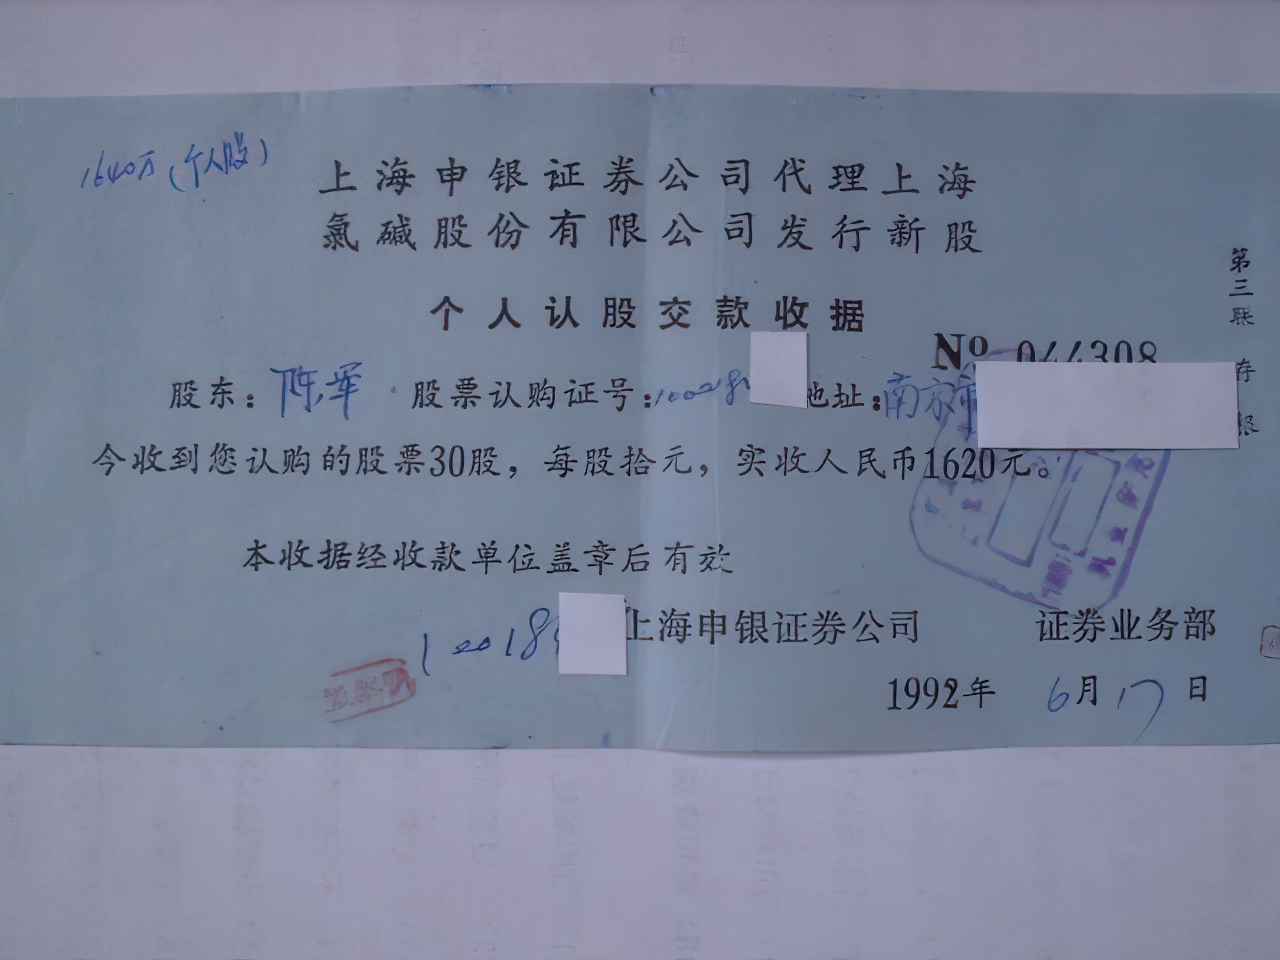 1640万(个人股)
上海申银证券公司代理上海
氯碱股份有限公司发行新股
个人认股交款收据
第三联 存根
№ 044308
股东：陈军 股票认购证号：10028 地址：南京市
今收到您认购的股票30股，每股拾元，实收人民币1620元。
本收据经收款单位盖章后有效
10018
上海申银证券公司 证券业务部
1992年 6月17日